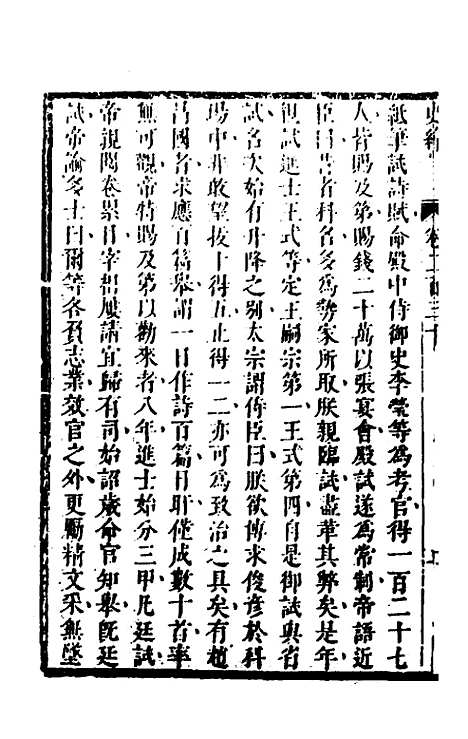 史緯
卷二百三十
紙筆試詩賦命殿中侍御史李瑩等為考官得一百二十七
人皆賜及第賜錢二十萬以張宴會殿試遂為常制帝語近
臣曰昔者科名多為勢家所取朕親臨試盡革其弊矣是年
親試進士王式等定王嗣宗第一王式第四自是御試與省
試名次始有升降之別太宗謂侍臣曰朕欲博求俊彥於科
場中非敢望拔十得五止得一二亦可為致治之具矣有趙
昌國者求應百篇舉謂一日作詩百篇日旰僅成數十首率
無可觀帝特賜及第以勸來者八年進士始分三甲凡廷試
帝親閱卷累日宰相屢請宜歸有司始詔歲命官知舉既廷
試帝諭多士曰爾等各負志業效官之外更勵精文采無墜